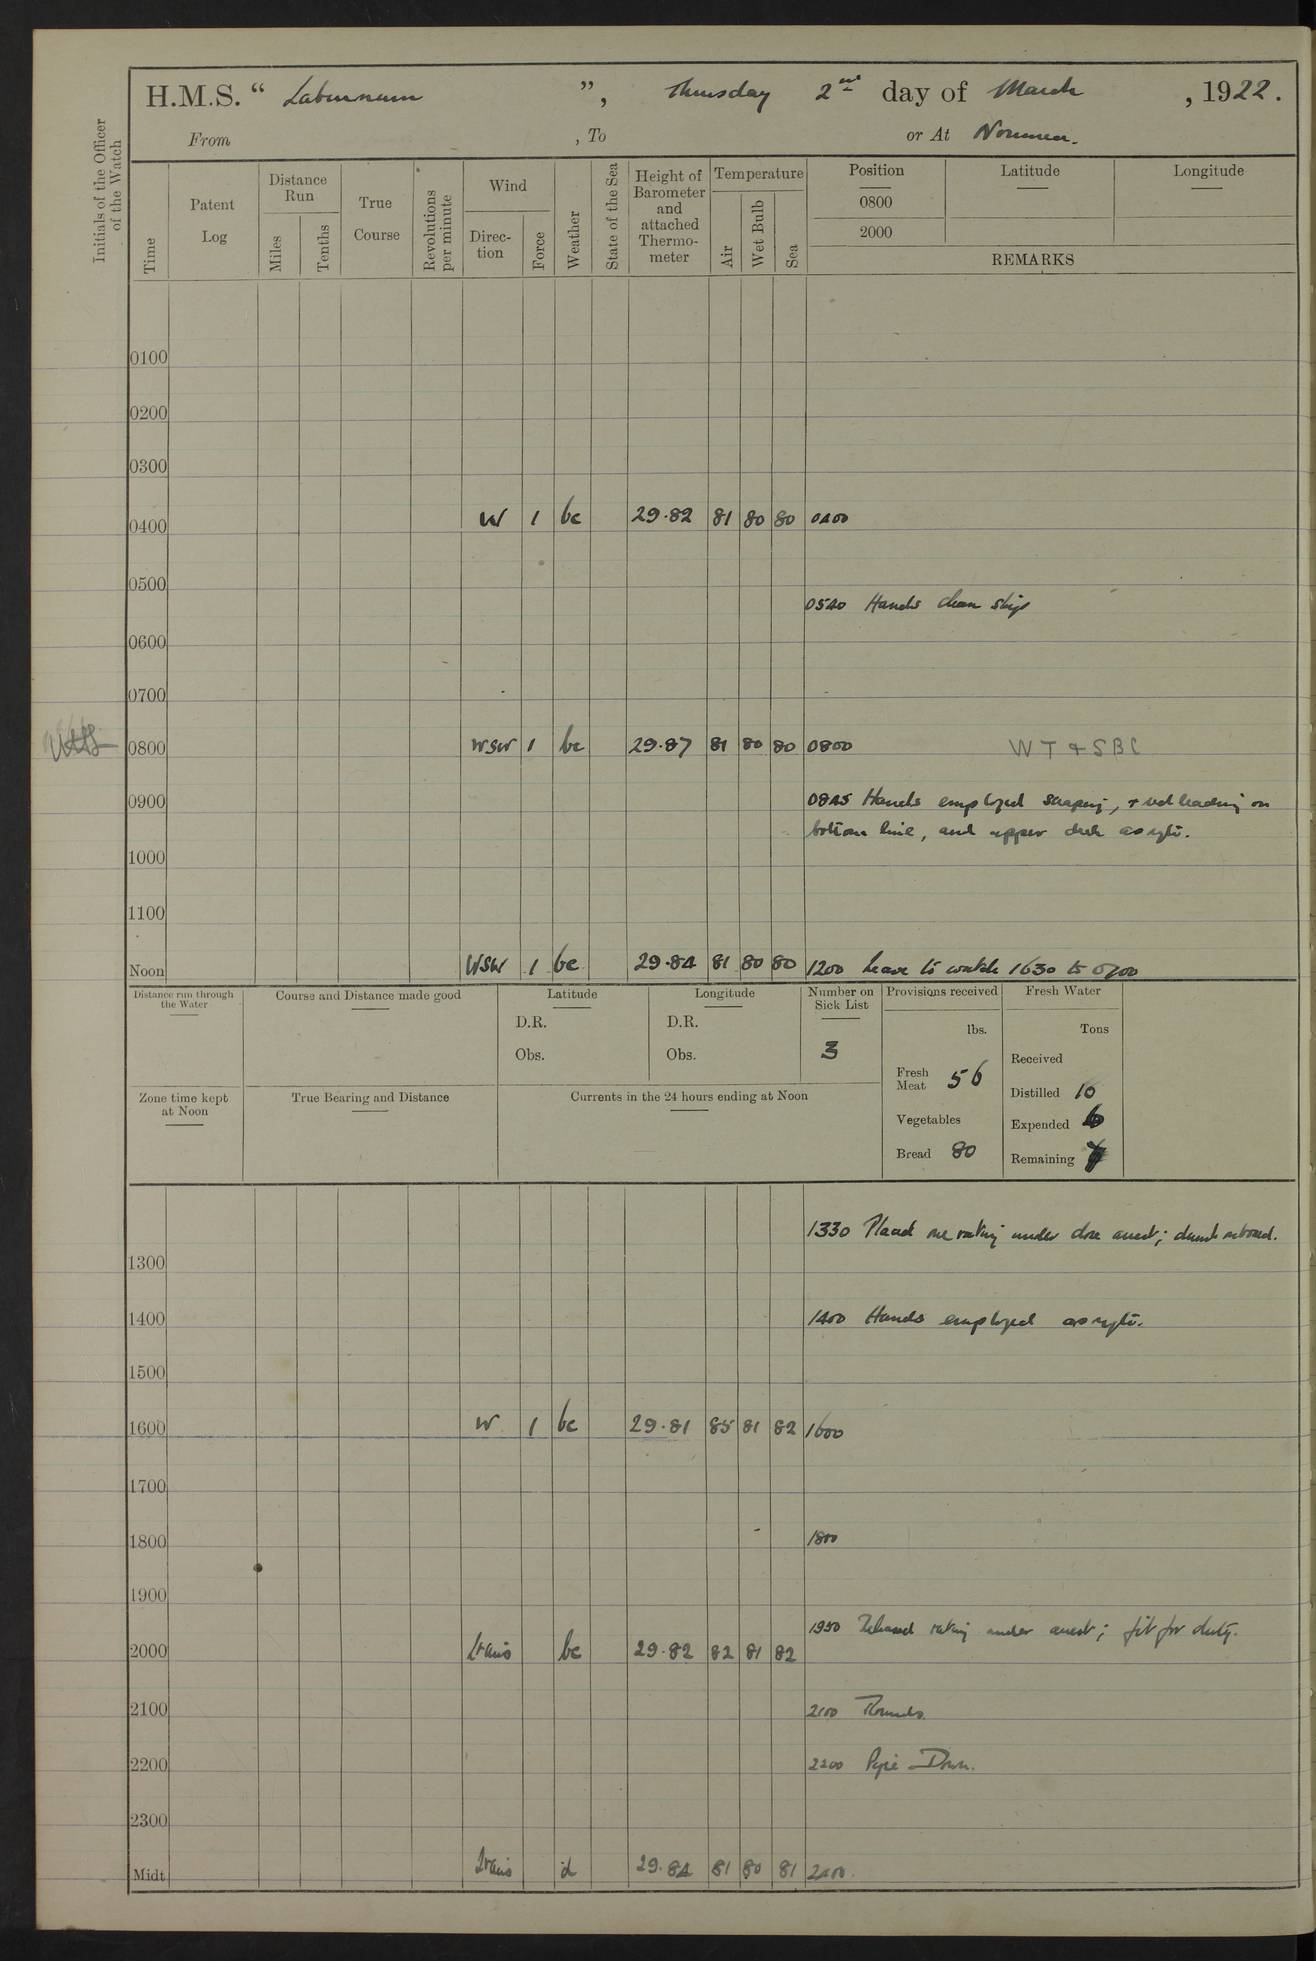 H.M.S. “ Laburnum ”, Thursday 2nd day of March, 1922.
From , To or At Noumea.
Initials of the Officer of the Watch
Time
Patent Log
Distance Run
Miles
Tenths
True Course
Revolutions per minute
Wind
Direction
Force
Weather
State of the Sea
Height of Barometer and attached Thermometer
Temperature
Air
Wet Bulb
Sea
Position Latitude Longitude
0800
2000
REMARKS
0100
0200
0300
0400 W 1 bc 29.82 81 80 80 0400
0500
0540 Hands clean ship
0600
0700
0800 WSW 1 bc 29.87 81 80 80 0800 W T & S B C
0900 0845 Hands employed scraping, & red leading on
bottom line, and upper deck as reqte.
1000
1100
Noon WSW 1 bc 29.84 81 80 80 1200 Leave to watch 1630 to 0700
Distance run through the Water
Course and Distance made good
Latitude
D.R.
Obs.
Longitude
D.R.
Obs.
Number on Sick List
3
Provisions received
lbs.
Fresh Meat 56
Vegetables
Bread 80
Fresh Water
Tons
Received
Distilled 10
Expended
Remaining
Zone time kept at Noon
True Bearing and Distance
Currents in the 24 hours ending at Noon
1330 Placed one rating under close arrest; drunk onboard.
1300
1400 1400 Hands employed as reqte.
1500
1600 W 1 bc 29.81 85 81 82 1600
1700
1800 1800
1900
1950 Released rating under arrest; fit for duty.
2000 Lt airs bc 29.82 82 81 82
2100 2100 Rounds.
2200 2200 Pipe Down.
2300
Midt Lt airs d 29.84 81 80 81 2400.